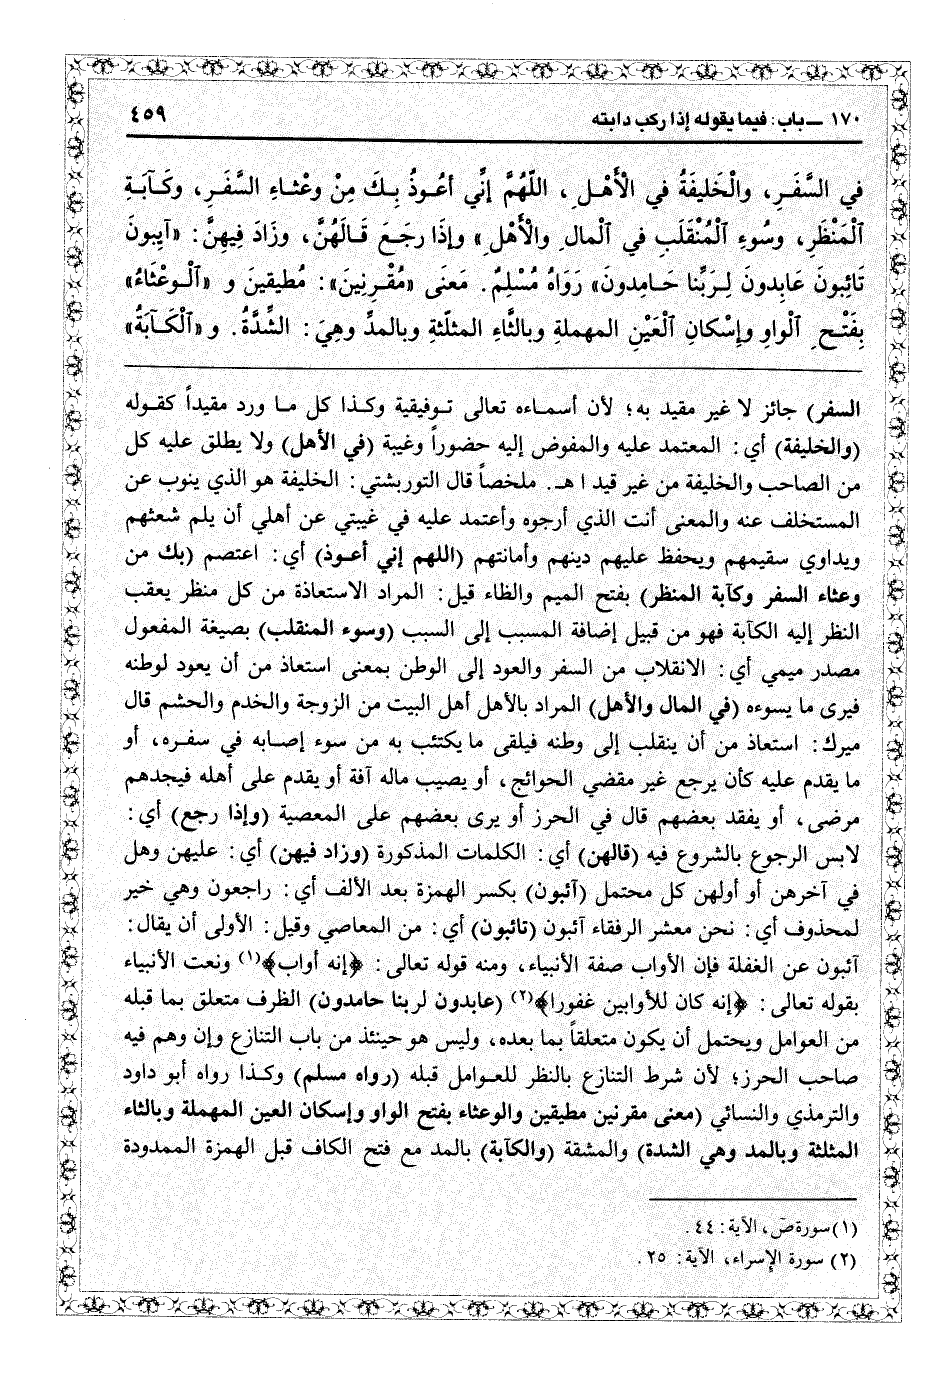 ١٧٠ ــ باب: فيما يقوله إذا ركب دابته ٤٥٩
في السَّفَرِ، والْخَليفَةُ في الْأَهْلِ، اللَّهُمَّ إِنِّي أعُوذُ بِكَ مِنْ وعْثاءِ السَّفَرِ، وكَآبَةِ
الْمَنْظَرِ، وسُوءِ الْمُنْقَلَبِ في الْمالِ والْأَهْلِ» وإذَا رجَعَ قَالَهُنَّ، وزَادَ فِيهِنَّ: «آيِبُونَ
تَائِبُونَ عَابِدونَ لِرَبِّنا حَامِدونَ» رَوَاهُ مُسْلِمٌ. مَعنَى «مُقْرِنِينَ»: مُطيقينَ و «الْوعْثَاءُ»
بِفَتْحِ الْواوِ وإسْكانِ الْعَيْنِ المهملةِ وبالثَّاءِ المثلّثةِ وبالمدِّ وهِيَ: الشِّدَّةُ. و«الْكَآبَةُ»
السفر) جائز لا غير مقيد به؛ لأن أسماءه تعالى توفيقية وكذا كل ما ورد مقيداً كقوله
(والخليفة) أي: المعتمد عليه والمفوض إليه حضوراً وغيبة (في الأهل) ولا يطلق عليه كل
من الصاحب والخليفة من غير قيد ا هـ. ملخصاً قال التوربشتي: الخليفة هو الذي ينوب عن
المستخلف عنه والمعنى أنت الذي أرجوه وأعتمد عليه في غيبتي عن أهلي أن يلم شعثهم
ويداوي سقيمهم ويحفظ عليهم دينهم وأمانتهم (اللهم إني أعوذ) أي: اعتصم (بك من
وعثاء السفر وكآبة المنظر) بفتح الميم والظاء قيل: المراد الاستعاذة من كل منظر يعقب
النظر إليه الكآبة فهو من قبيل إضافة المسبب إلى السبب (وسوء المنقلب) بصيغة المفعول
مصدر ميمي أي: الانقلاب من السفر والعود إلى الوطن بمعنى استعاذ من أن يعود لوطنه
فيرى ما يسوءه (في المال والأهل) المراد بالأهل أهل البيت من الزوجة والخدم والحشم قال
ميرك: استعاذ من أن ينقلب إلى وطنه فيلقى ما يكتئب به من سوء إصابه في سفره، أو
ما يقدم عليه كأن يرجع غير مقضي الحوائج، أو يصيب ماله آفة أو يقدم على أهله فيجدهم
مرضى، أو يفقد بعضهم قال في الحرز أو يرى بعضهم على المعصية (وإذا رجع) أي:
لابس الرجوع بالشروع فيه (قالهن) أي: الكلمات المذكورة (وزاد فيهن) أي: عليهن وهل
في آخرهن أو أولهن كل محتمل (آئبون) بكسر الهمزة بعد الألف أي: راجعون وهي خير
لمحذوف أي: نحن معشر الرفقاء آئبون (تائبون) أي: من المعاصي وقيل: الأولى أن يقال:
آئبون عن الغفلة فإن الأواب صفة الأنبياء، ومنه قوله تعالى: ﴿إنه أواب﴾(١) ونعت الأنبياء
بقوله تعالى: ﴿إنه كان للأوابين غفورا﴾(٢) (عابدون لربنا حامدون) الظرف متعلق بما قبله
من العوامل ويحتمل أن يكون متعلقاً بما بعده، وليس هو حينئذ من باب التنازع وإن وهم فيه
صاحب الحرز؛ لأن شرط التنازع بالنظر للعوامل قبله (رواه مسلم) وكذا رواه أبو داود
والترمذي والنسائي (معنى مقرنين مطيقين والوعثاء بفتح الواو وإسكان العين المهملة وبالثاء
المثلثة وبالمد وهي الشدة) والمشقة (والكآبة) بالمد مع فتح الكاف قبل الهمزة الممدودة
(١) سورة صَ، الآية: ٤٤.
(٢) سورة الإسراء، الآية: ٢٥.